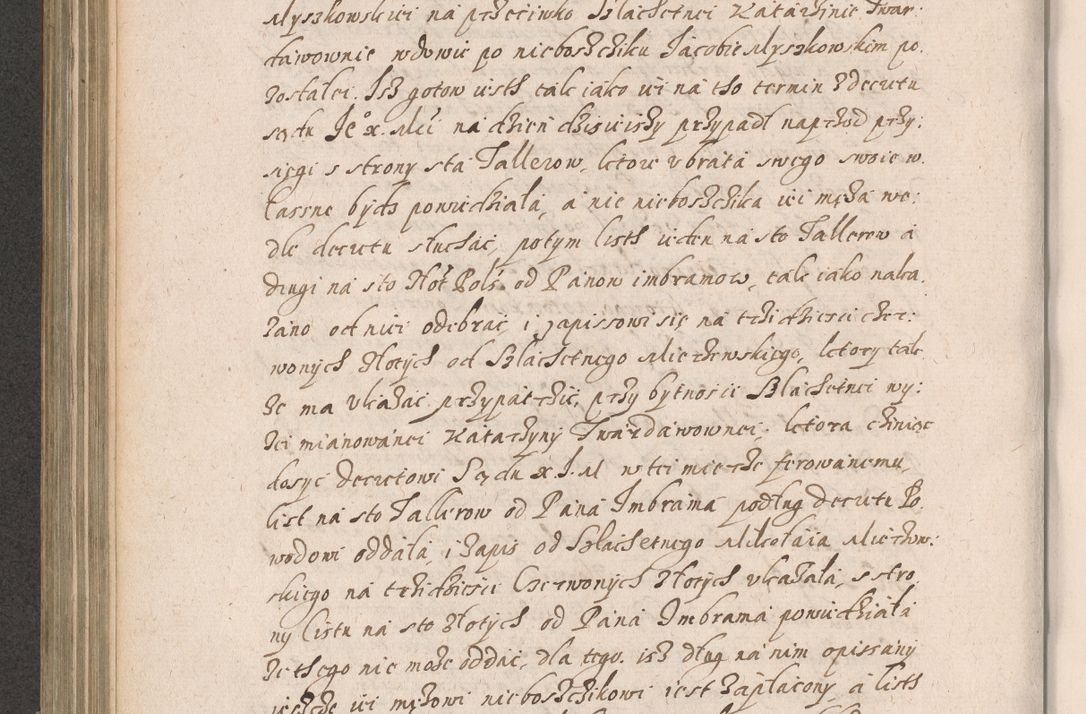 Myszkowskiei na przeciwko Szlachetnei Katarzinie Twar:
dawownie wdowie po nieboszcziku Jacobie Myszkowskim po:
zostałei. Isz gotow iesth tak iako iei na tho termin z decretu
sądu Je° x. Mći na dzień dzisieiszy przypadł naprzod przy:
sięgi s strony sta Tallerow, ktore v brata swego swoie w:
łassne bydz powiedziała, a nie nieboszczika iei męża we:
dle decretu słuchać, potym listh ieden na sto Tallerow a
drugi na sto Złot Pols: od Panow imbramow, tak iako naka:
zano od niei odebrać i zapissowi się na trzidziesci czer:
wonych Złotych od Szlachetnego Mierzewskiego, ktory tak
że ma vkazać przypatrzić, przy bytnosci Szlachetnei wy:
żei mianowanei Katarzyny Twardawownei, ktora czyniąc
dosyc decretowi Sądu x. J. M w tei mierze ferowanemu,
list na sto Tallerow od Pana Imbrama podług decretu Po:
wodowi oddała, i zapis od Szlachetnego Mikołaia Mierzow:
skiego na trzidziesci Czerwonych Złotych vkazała, s stro:
ny listu na sto złotych od Pana Imbrama powiedziała
że thego nie może oddać, dla tego isz dług na nim opissany
ieszcze iei mężowi nieboszczikowi iest zapłacony, a listh